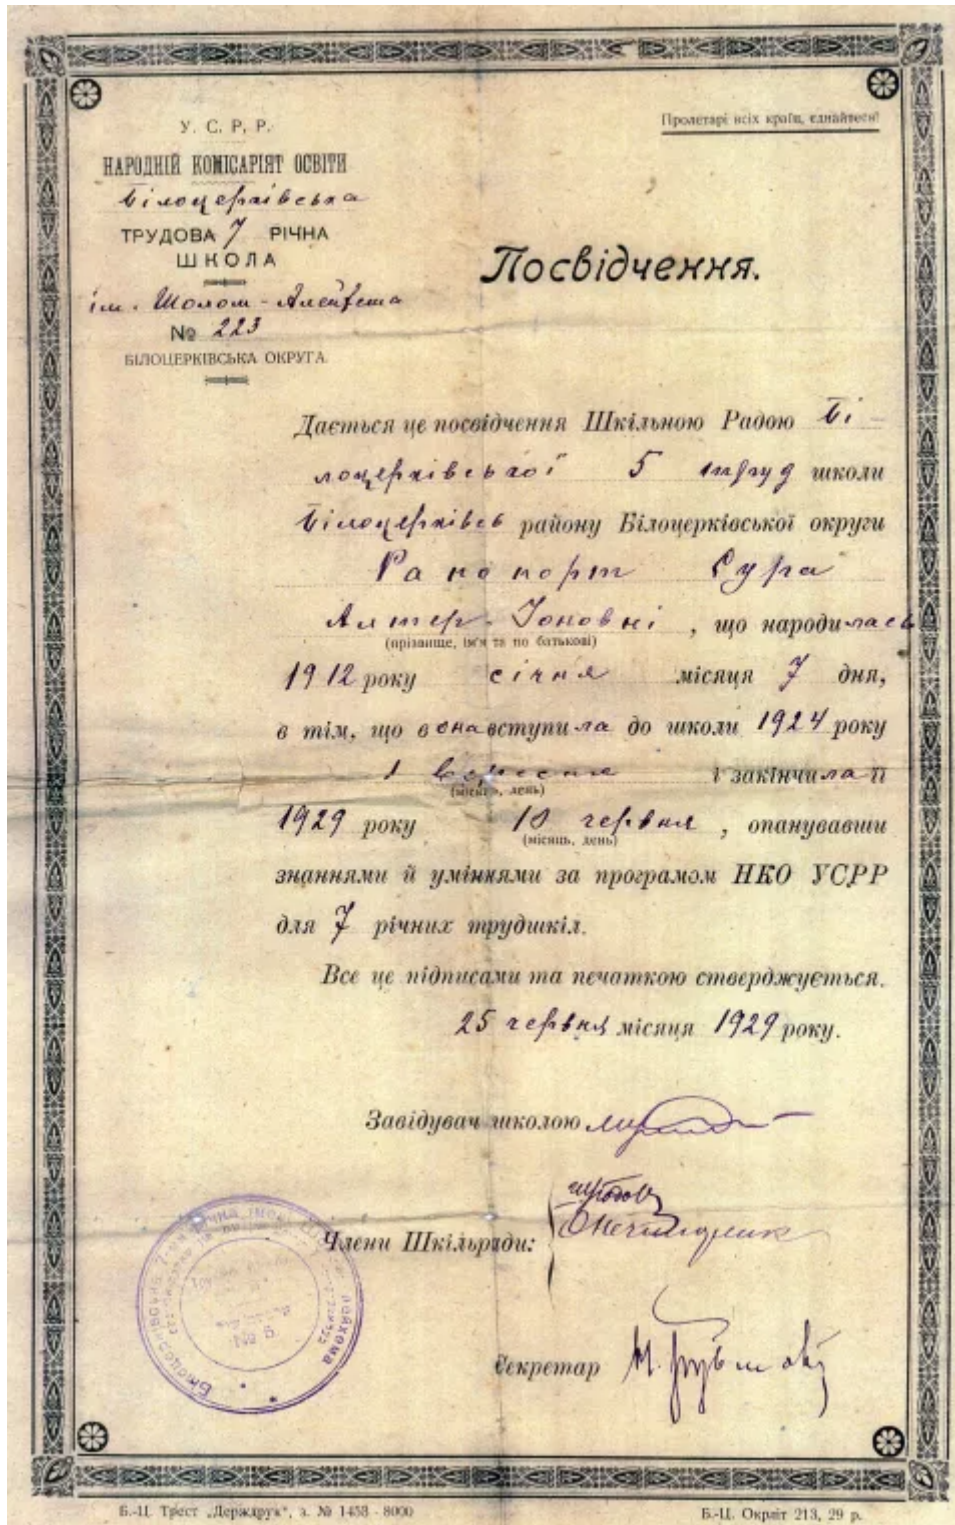 У. С. Р. Р.
НАРОДНІЙ КОМІСАРІЯТ ОСВІТИ
Білоцерківська
ТРУДОВА 7 РІЧНА
ШКОЛА
ім. Шолом-Алейхема
№ 223
БІЛОЦЕРКІВСЬКА ОКРУГА
Пролетарі всіх країн, єднайтеся!
Посвідчення.
Дається це посвідчення Шкільною Радою Бі-
лоцерківської 5 труд школи
Білоцерківсь району Білоцерківської округи
Рапопорт Сура
Алтер-Іоновні, що народилась
(прізвище, ім'я та по батькові)
1912 року січня місяця 7 дня,
в тім, що вона вступила до школи 1924 року
1 вересня і закінчила її
(місяць, день)
1929 року 10 червня, опанувавши
(місяць, день)
знаннями й уміннями за програмом НКО УСРР
для 7 річних трудшкіл.
Все це підписами та печаткою стверджується.
25 червня місяця 1929 року.
Завідувач школою
Члени Шкільради:
Секретар
№ 5
Б.-Ц. Трест „Держдрук", з. № 1453 - 8000
Б.-Ц. Окрліт 213, 29 р.